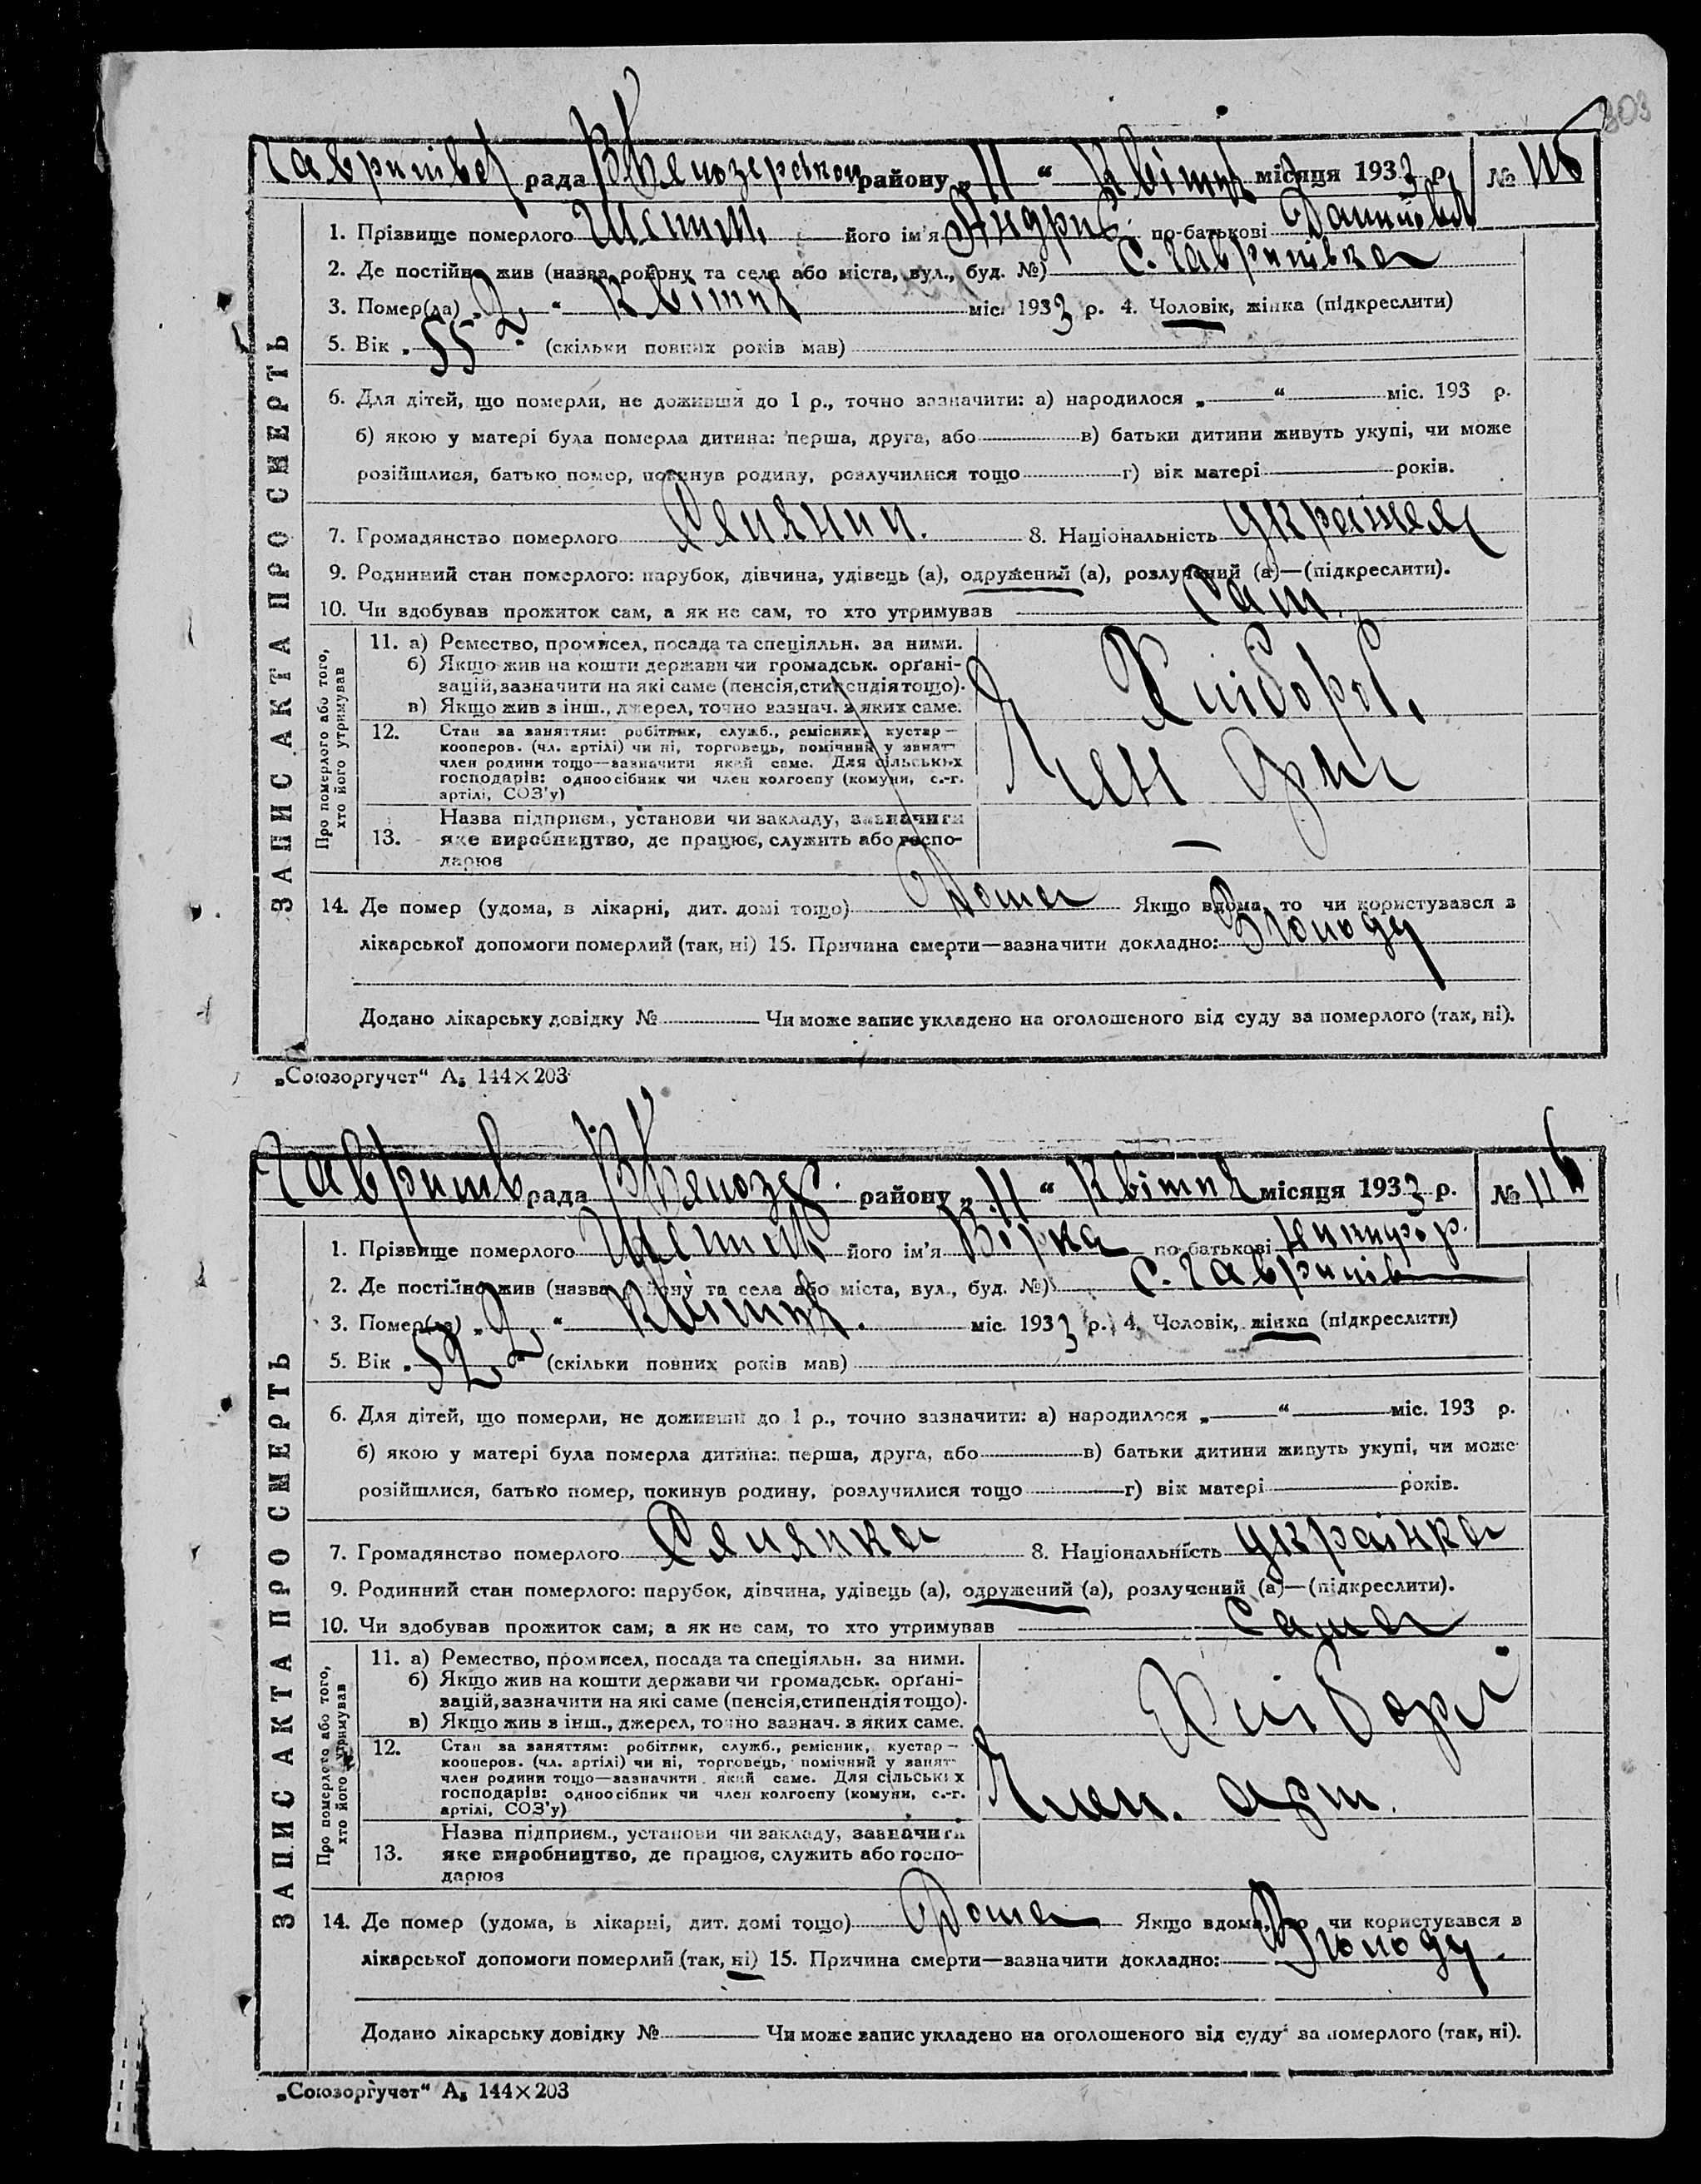 303
Гаврилівс рада В Білозерською району „11“ Квітня місяця 1933 р. №
1. Прізвище померлого його ім'я Андрій по-батькові
2. Де постійно жив (назва району та села або міста, вул., буд. №) с. Гаврилівка
3. Помер(ла) „2“ Квітня міс. 1933 р. 4. Чоловік, жінка (підкреслити)
5. Вік „55“ (скільки повних років мав)
6. Для дітей, що померли, не доживши до 1 р., точно зазначити: а) народилося „ “ міс. 193 р.
б) якою у матері була померла дитина: перша, друга, або в) батьки дитини живуть укупі, чи може
розійшлися, батько помер, покинув родину, розлучилися тощо г) вік матері років.
7. Громадянство померлого Селянин. 8. Національність українец
9. Родинний стан померлого: парубок, дівчина, удівець (а), одружений (а), розлучений (а)—(підкреслити).
10. Чи здобував прожиток сам, а як не сам, то хто утримував Сам.
ЗАПИС АКТА ПРО СМЕРТЬ
Про померлого або того, хто його утримував
11. а) Ремество, промисел, посада та спеціяльн. за ними.
б) Якщо жив на кошти держави чи громадськ. орґані-
зацій, зазначити на які саме (пенсія, стипендія тощо).
в) Якщо жив з інш., джерел, точно зазнач. з яких саме.
Хлібороб.
12. Стан за заняттям: робітник, служб., ремісник, кустар—
кооперов. (чл. артілі) чи ні, торговець, помічний у занят—
член родини тощо—зазначити який саме. Для сільських
господарів: одноосібник чи член колгоспу (комуни, с.-г.
артілі, СОЗ'у)
Член
13. Назва підприєм., установи чи закладу, зазначити
яке виробництво, де працює, служить або госпо-
дарює
—
14. Де помер (удома, в лікарні, дит. домі тощо) Дома Якщо вдома, то чи користувався з
лікарської допомоги померлий (так, ні) 15. Причина смерти—зазначити докладно: З голоду
Додано лікарську довідку № Чи може запис укладено на оголошеного від суду за померлого (так, ні).
„Союзоргучет“ А5 144×203
Гаврилів рада В Білозер. району „11“ Квітня місяця 1933 р. №
1. Прізвище померлого його ім'я Вірка по-батькові Никифор.
2. Де постійно жив (назва району та села або міста, вул., буд. №) с. Гаврилів
3. Помер(ла) „2“ Квітня. міс. 1933 р. 4. Чоловік, жінка (підкреслити)
5. Вік „52“ (скільки повних років мав)
6. Для дітей, що померли, не доживши до 1 р., точно зазначити: а) народилося „ “ міс. 193 р.
б) якою у матері була померла дитина: перша, друга, або в) батьки дитини живуть укупі, чи може
розійшлися, батько помер, покинув родину, розлучилися тощо г) вік матері років.
7. Громадянство померлого Селянка 8. Національність українка
9. Родинний стан померлого: парубок, дівчина, удівець (а), одружений (а), розлучений (а)—(підкреслити).
10. Чи здобував прожиток сам, а як не сам, то хто утримував сама
ЗАПИС АКТА ПРО СМЕРТЬ
Про померлого або того, хто його утримував
11. а) Ремество, промисел, посада та спеціяльн. за ними.
б) Якщо жив на кошти держави чи громадськ. орґані-
зацій, зазначити на які саме (пенсія, стипендія тощо).
в) Якщо жив з інш., джерел, точно зазнач. з яких саме.
12. Стан за заняттям: робітник, служб., ремісник, кустар—
кооперов. (чл. артілі) чи ні, торговець, помічний у занят—
член родини тощо—зазначити який саме. Для сільських
господарів: одноосібник чи член колгоспу (комуни, с.-г.
артілі, СОЗ'у)
Член. арт.
13. Назва підприєм., установи чи закладу, зазначити
яке виробництво, де працює, служить або госпо-
дарює
14. Де помер (удома, в лікарні, дит. домі тощо) Дома Якщо вдома, то чи користувався з
лікарської допомоги померлий (так, ні) 15. Причина смерти—зазначити докладно: З голоду.
Додано лікарську довідку № Чи може запис укладено на оголошеного від суду за померлого (так, ні).
„Союзоргучет“ А5 144×203